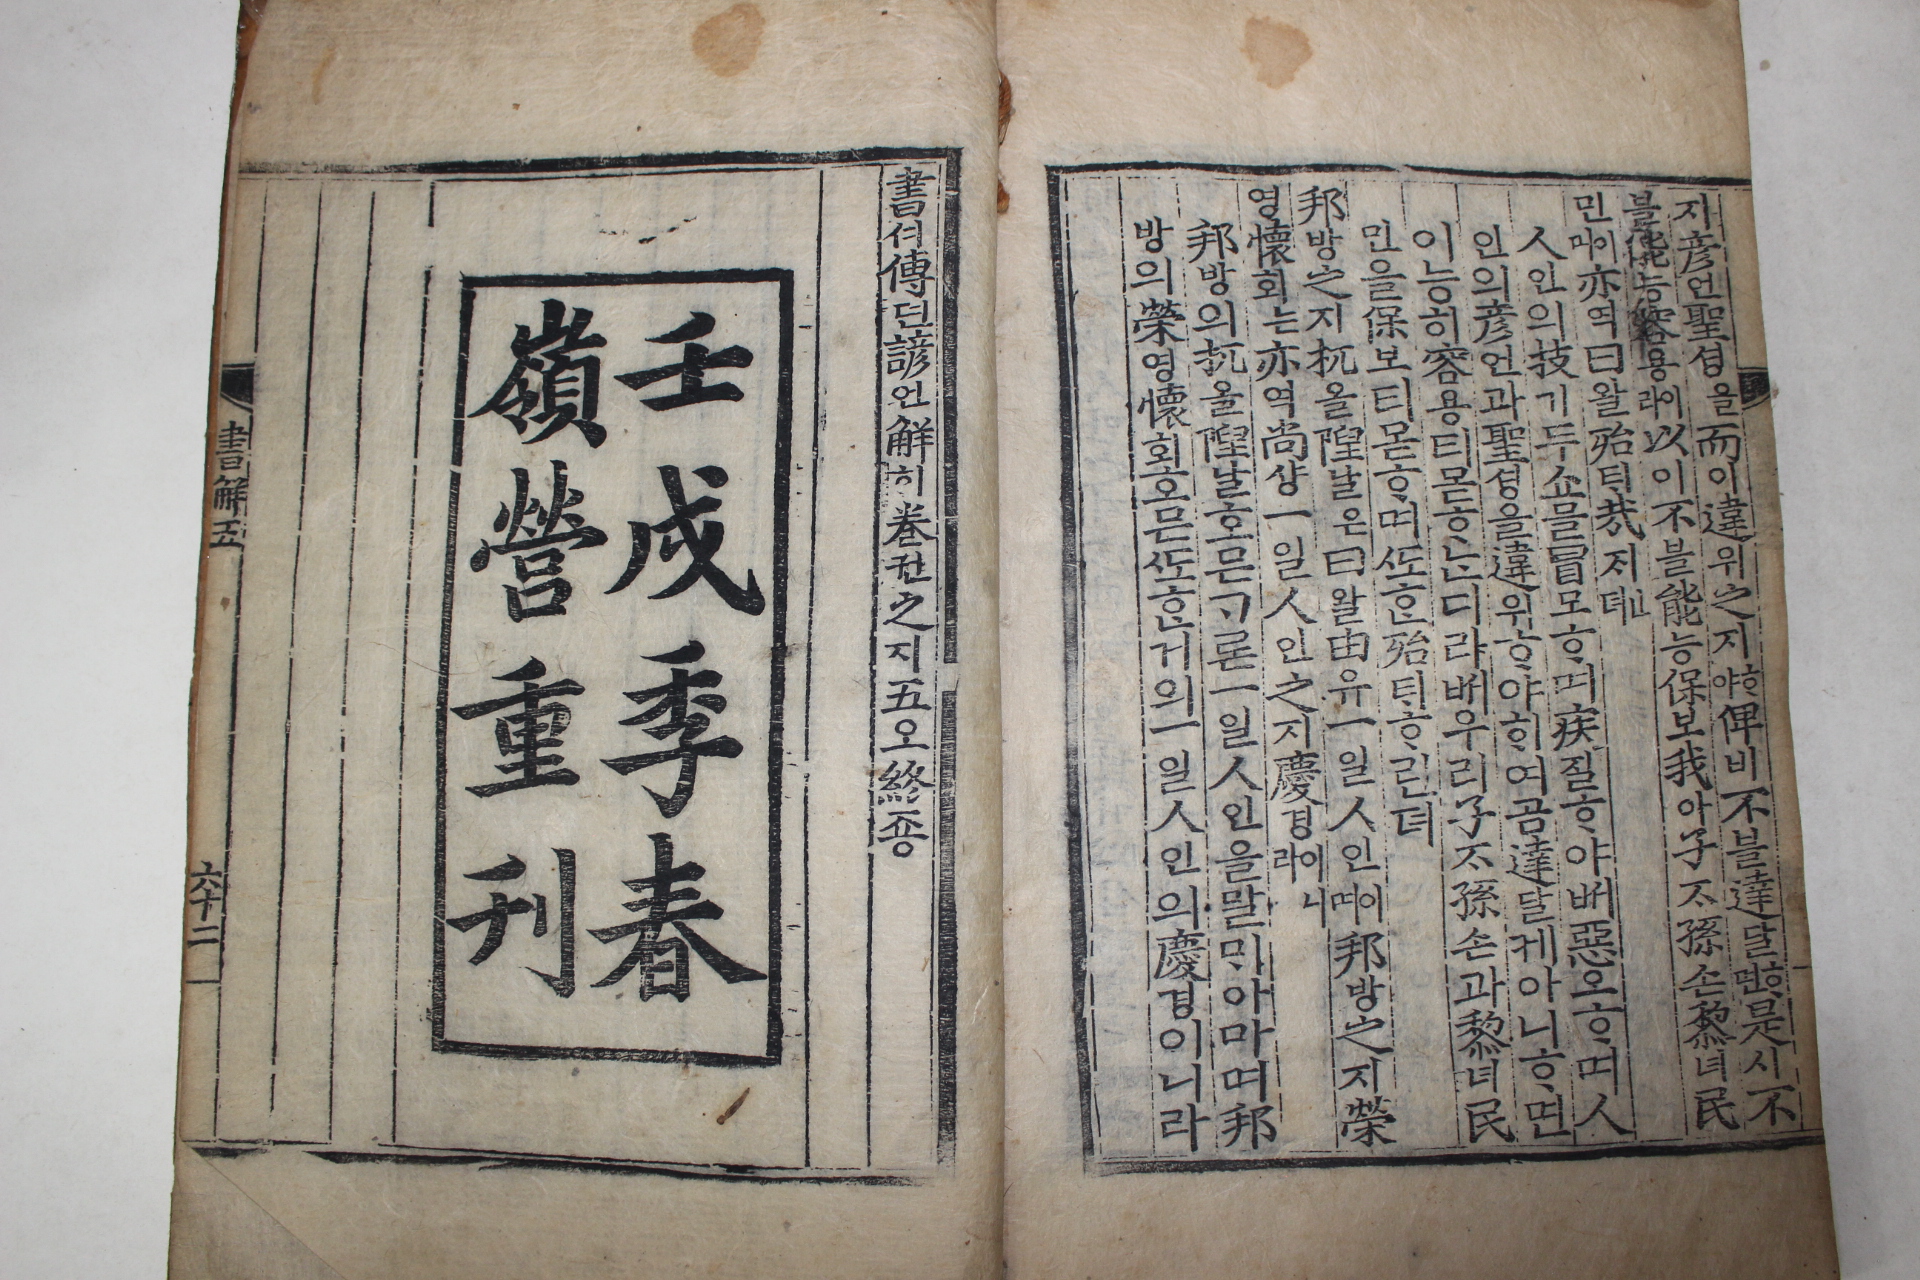 지彦언聖셩을而이違위之지ᄒᆞ야俾비不블達달ᄒᆞ면是시不
블能능容용이라以이不블能능保보我아子ᄌᆞ孫손黎녀民
민이며亦역曰왈殆ᄐᆡ哉ᄌᆡㄴ뎌
人인의技기두쇼믈冒모ᄒᆞ며疾질ᄒᆞ야ᄡᅥ惡오ᄒᆞ며人
인의彦언과聖셩을違위ᄒᆞ야ᄒᆞ여곰達달케아니ᄒᆞ면
이능히容용티몯ᄒᆞᄂᆞᆫ디라ᄡᅥ우리子ᄌᆞ孫손과黎녀民
민을保보티몯ᄒᆞ며ᄯᅩᄒᆞᆫ殆ᄐᆡᄒᆞ린뎌
邦방之지杌올隉날은曰왈由유一일人인이며邦방之지榮
영懷회는亦역尚샹一일人인之지慶경이니라
邦방의杌올隉날호믄ᄀᆞᆯ론一일人인을말ᄆᆡ아마며邦
방의榮영懷회호믄ᄯᅩᄒᆞᆫ거의一일人인의慶경이니라
書셔傳뎐諺언解ᄒᆡ卷권之지五오終죵
壬戌季春
嶺營重刊
書解五
六十二